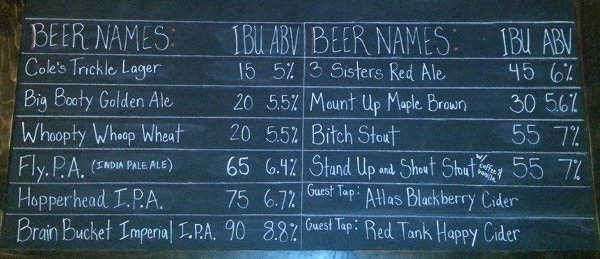 BEER NAMES: IBU ABV
Cole's Trickle Lager 15 5%
Big Booty Golden Ale 20 5.5%
Whoopty Whoop Wheat 20 5.5%
Fly.P.A. (INDIA PALE ALE) 65 6.4%
Hopperhead I.P.A. 75 6.7%
Brain Bucket Imperial I.P.A. 90 8.8%
BEER NAMES: IBU ABV
3 Sisters Red Ale 45 6%
Mount Up Maple Brown 30 5.6%
Bitch Stout 55 7%
Stand Up and Shout Stout w/ coffee & vanilla 55 7%
Guest Tap: Atlas Blackberry Cider
Guest Tap: Red Tank Happy Cider